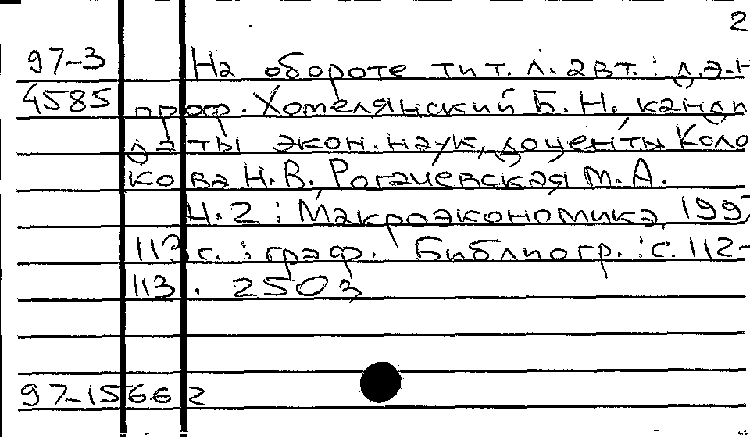 2
97-3 На обороте тит. л. авт.: д.э.н
4585 проф. Хотелянский Б.Н., канди
даты экон. наук, доценты Коло
кова Н.В., Рогачевская М.А.
Ч.2: Макроэкономика, 1997
113 с. : граф. Библиогр.: с. 112-
113. 250 э
97-15662